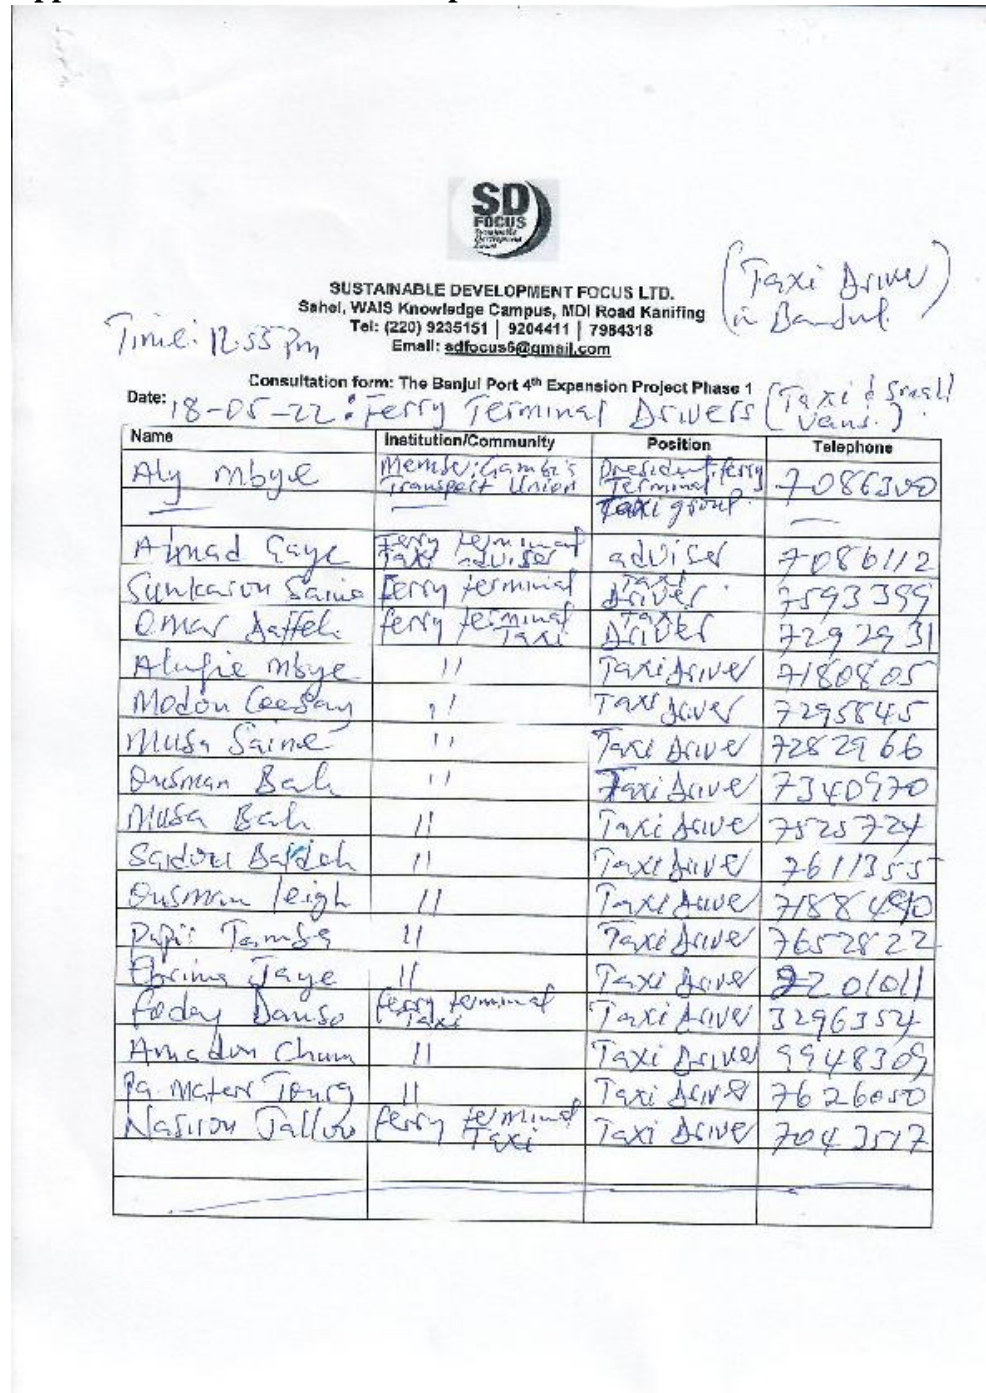 SD
FOCUS
(Taxi Driver
in Banjul)
SUSTAINABLE DEVELOPMENT FOCUS LTD.
Sahel, WAIS Knowledge Campus, MDI Road Kanifing
Tel: (220) 9235151 | 9204411 | 7984318
Email: sdfocus6@gmail.com
Time: 12.55 Pm
Consultation form: The Banjul Port 4th Expansion Project Phase 1
Date: 18-05-22: Ferry Terminal Drivers (Taxi & Small Vans.)
Name Institution/Community Position Telephone
Aly Mbye Transport Union President, ferry Terminal Taxi group. 7086300
Ahmad Gaye Ferry terminal Taxi adviser adviser 7086112
Sunkarou Saine Ferry terminal Taxi Driver 7593399
Omar Ferry terminal Taxi Taxi Driver 7292931
Mbye 11 Taxi Driver 7180805
Modou Ceesay 11 Taxi Driver 7295845
Musa Saine 11 Taxi Driver 7282966
Ousman Bah 11 Taxi Driver 7340970
Musa Bah 11 Taxi Driver 7525724
11 Taxi Driver 7611355
Ousman Leigh 11 Taxi Driver
11 Taxi Driver 7652822
Ebrima Jaye 11 Taxi Driver
Foday Danso ferry terminal Taxi Taxi Driver 3296354
Amadou Cham 11 Taxi Driver 9948309
11 Taxi Driver 7626050
Nasirou Jallow ferry terminal Taxi Taxi Driver 7043517